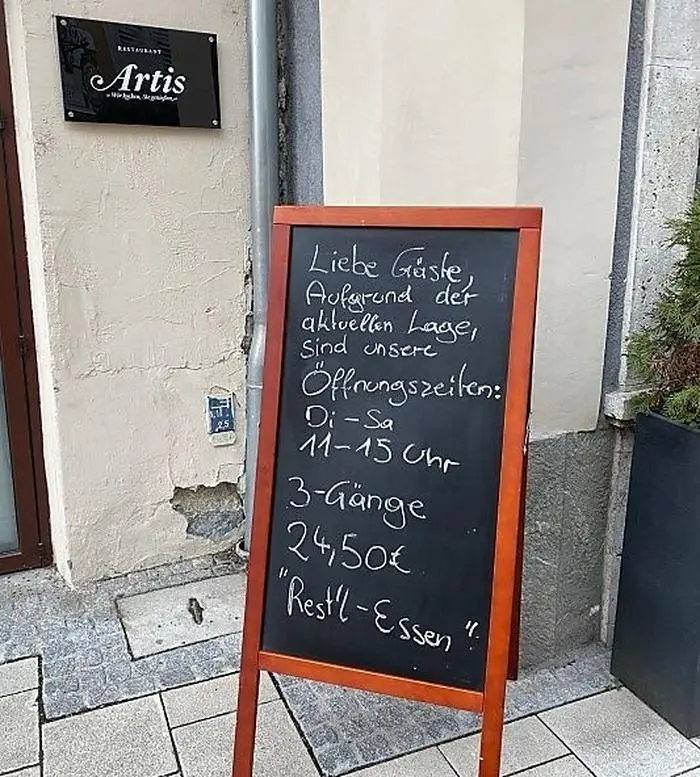 RESTAURANT
Artis
Wir kochen, Sie genießen
Liebe Gäste,
Aufgrund der
aktuellen Lage,
sind unsere
Öffnungszeiten:
Di - Sa
11-15 Uhr
3-Gänge
24,50€
"Rest'l-Essen"